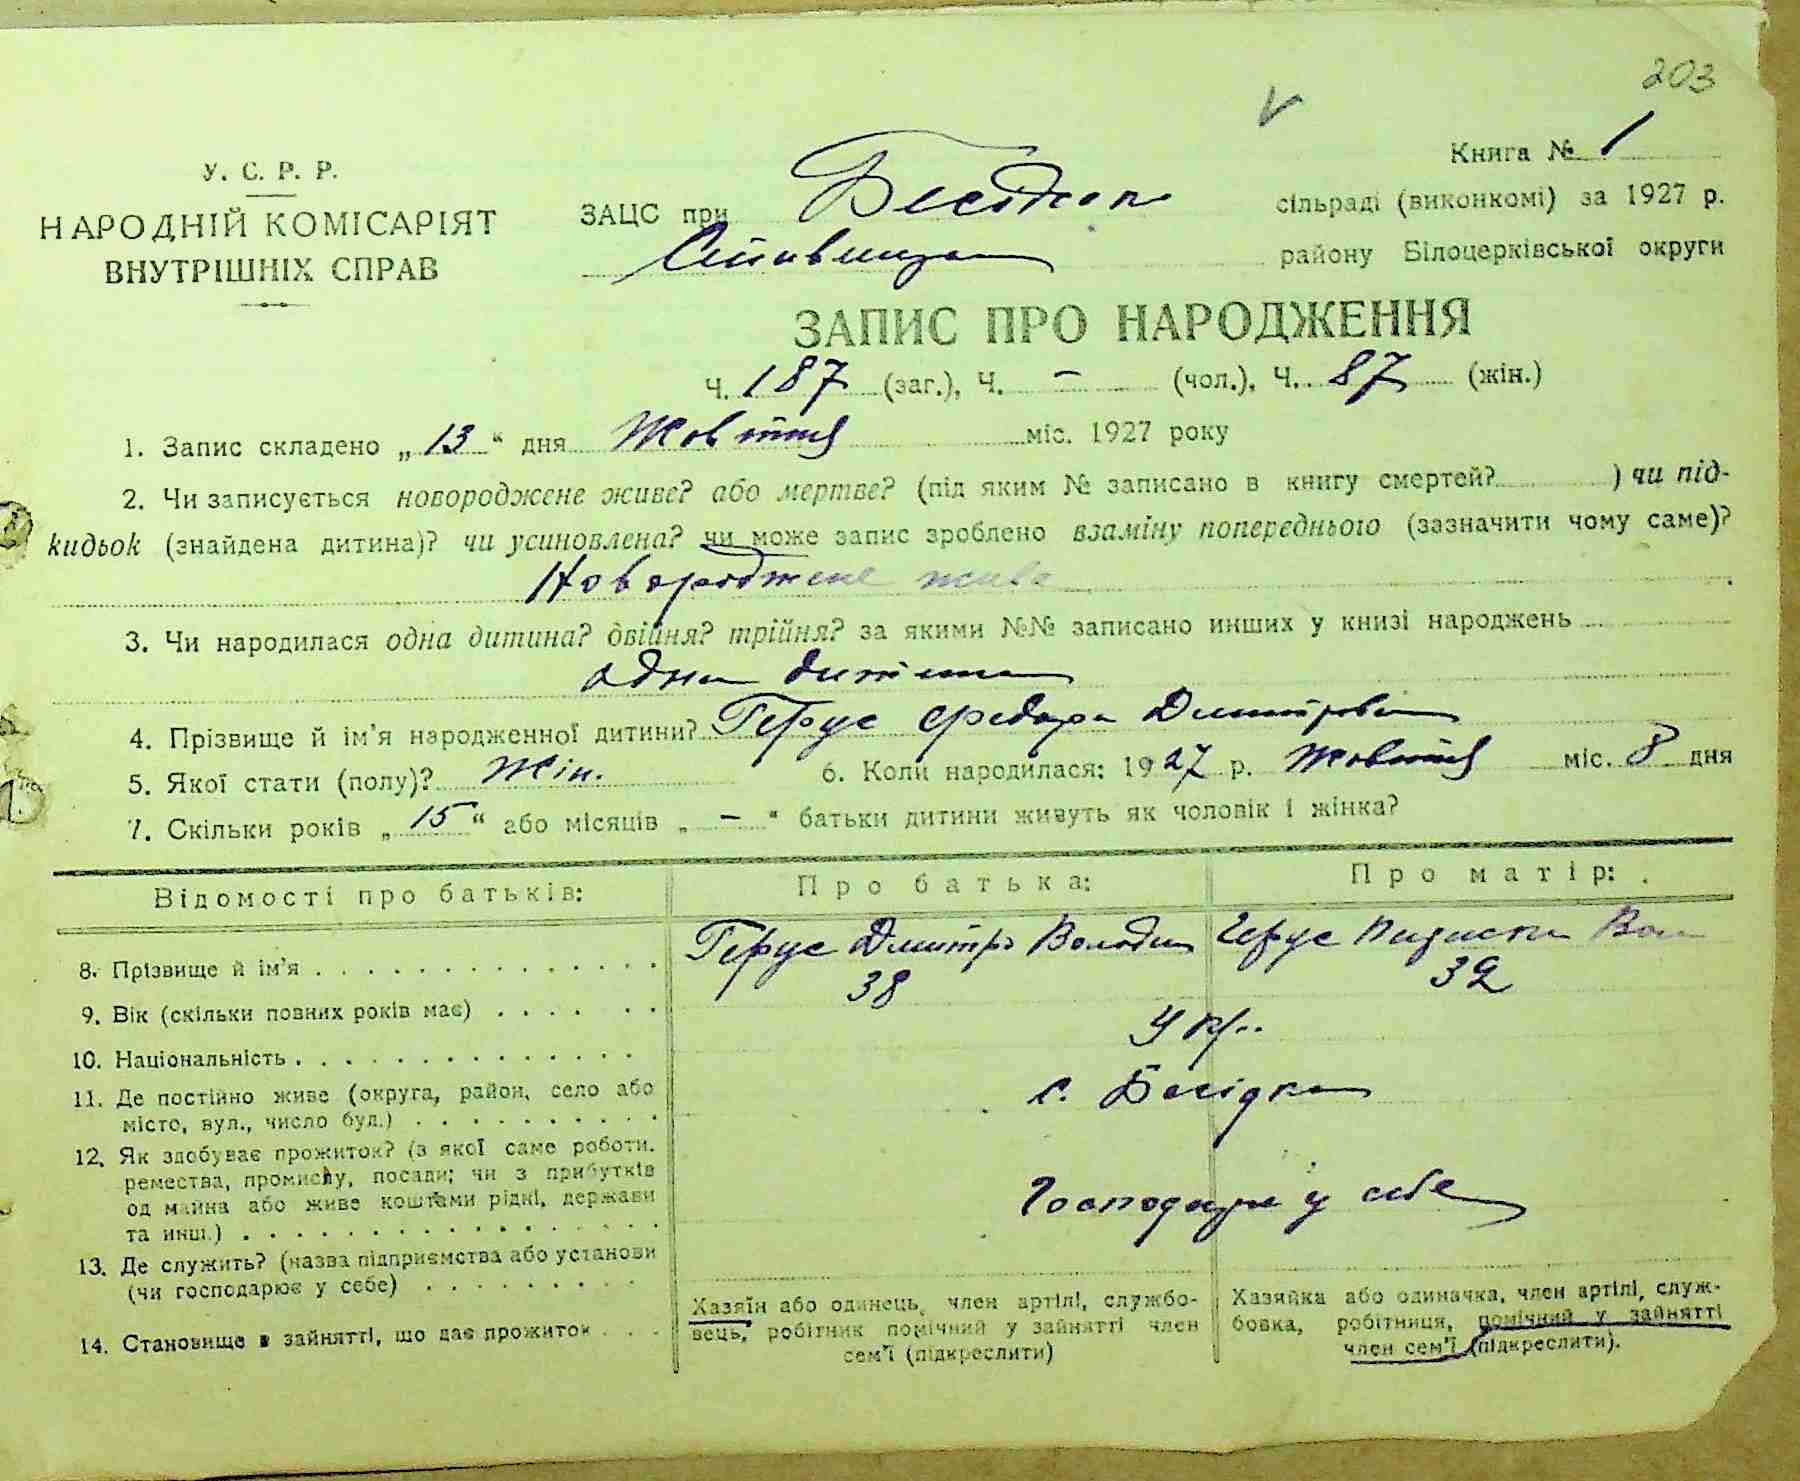 203
V
Книга № 1
У. С. Р. Р.
НАРОДНІЙ КОМІСАРІЯТ
ВНУТРІШНІХ СПРАВ
ЗАЦС при Бесідкоп сільраді (виконкомі) за 1927 р.
району Білоцерківської округи
ЗАПИС ПРО НАРОДЖЕННЯ
Ч. 187 (заг.), Ч. – (чол.), Ч. 87 (жін.)
1. Запис складено „ 13 “ дня Жовтня міс. 1927 року
2. Чи записується новороджене живе? або мертве? (під яким № записано в книгу смертей? ) чи під-
кидьок (знайдена дитина)? чи усиновлена? чи може запис зроблено взаміну попереднього (зазначити чому саме)?
Новороджене живе
3. Чи народилася одна дитина? двійня? трійня? за якими №№ записано инших у книзі народжень
одна дитина
4. Прізвище й ім'я народженної дитини? Герус Федора Дмитрівна
5. Якої стати (полу)? Жін. 6. Коли народилася: 1927 р. Жовтня міс. 8 дня
7. Скільки років „ 15 “ або місяців „ – “ батьки дитини живуть як чоловік і жінка?
Відомості про батьків: Про батька: Про матір:
8. Прізвище й ім'я Герус Дмитро Володим Герус
9. Вік (скільки повних років має) 38 32
10. Національність Укр..
11. Де постійно живе (округа, район, село або
місто, вул., число буд.) с. Бесідка
12. Як здобуває прожиток? (з якої саме роботи.
ремества, промислу, посади; чи з прибутків
од майна або живе коштами рідні, держави
та инш.) Господарює у себе
13. Де служить? (назва підприємства або установи
(чи господарює у себе)
14. Становище в зайнятті, що дає прожиток
Хазяїн або одинець, член артілі, службо-
вець, робітник помічний у зайнятті член
сем'ї (підкреслити)
Хазяйка або одиначка, член артілі, служ-
бовка, робітниця, помічний у зайнятті
член сем'ї (підкреслити).